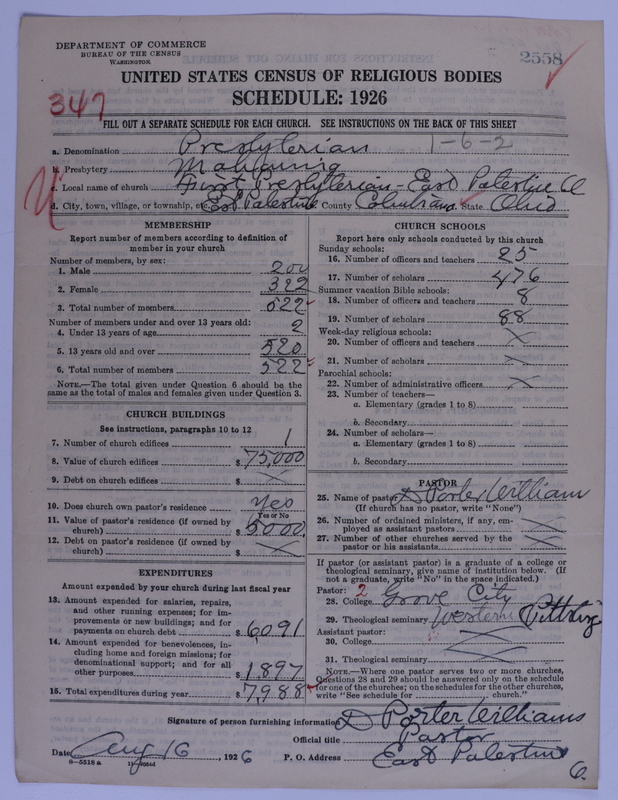 DEPARTMENT OF COMMERCE
BUREAU OF THE CENSUS
WASHINGTON
2558
UNITED STATES CENSUS OF RELIGIOUS BODIES
SCHEDULE: 1926
347
FILL OUT A SEPARATE SCHEDULE FOR EACH CHURCH. SEE INSTRUCTIONS ON THE BACK OF THIS SHEET
1-6-2
a. Denomination Presbyterian
b. Presbytery Mahoning
c. Local name of church First Presbyterian - East Palestine O
d. City, town, village, or township, etc. East Palestine County Columbiana State Ohio
MEMBERSHIP
Report number of members according to definition of member in your church
Number of members, by sex:
1. Male 200
2. Female 322
3. Total number of members 522
Number of members under and over 13 years old:
4. Under 13 years of age 2
5. 13 years old and over 520
6. Total number of members 522
NOTE.—The total given under Question 6 should be the same as the total of males and females given under Question 3.
CHURCH BUILDINGS
See instructions, paragraphs 10 to 12
7. Number of church edifices 1
8. Value of church edifices $ 75,000
9. Debt on church edifices $ X
10. Does church own pastor's residence? Yes
Yes or No
11. Value of pastor's residence (if owned by church) $ 5000.
12. Debt on pastor's residence (if owned by church) $ X
EXPENDITURES
Amount expended by your church during last fiscal year
13. Amount expended for salaries, repairs, and other running expenses; for improvements or new buildings; and for payments on church debt $ 6,091
14. Amount expended for benevolences, including home and foreign missions; for denominational support; and for all other purposes $ 1,897
15. Total expenditures during year $ 7,988
CHURCH SCHOOLS
Report here only schools conducted by this church
Sunday schools:
16. Number of officers and teachers 25
17. Number of scholars 476
Summer vacation Bible schools:
18. Number of officers and teachers 8
19. Number of scholars 88
Week-day religious schools:
20. Number of officers and teachers X
21. Number of scholars X
Parochial schools:
22. Number of administrative officers X
23. Number of teachers—
a. Elementary (grades 1 to 8)
b. Secondary
24. Number of scholars—
a. Elementary (grades 1 to 8)
b. Secondary
PASTOR
25. Name of pastor D Porter William
(If church has no pastor, write "None")
26. Number of ordained ministers, if any, employed as assistant pastors X
27. Number of other churches served by the pastor or his assistants X
If pastor (or assistant pastor) is a graduate of a college or theological seminary, give name of institution below. (If not a graduate, write "No" in the space indicated.)
Pastor: 2
28. College Grove City
29. Theological seminary Western Pittsbg
Assistant pastor:
30. College X
31. Theological seminary X
NOTE.—Where one pastor serves two or more churches, Questions 28 and 29 should be answered only on the schedule for one of the churches; on the schedules for the other churches, write "See schedule for church."
Signature of person furnishing information D Porter Williams
Official title Pastor
Date Aug 16, 1926 P. O. Address East Palestine
6.